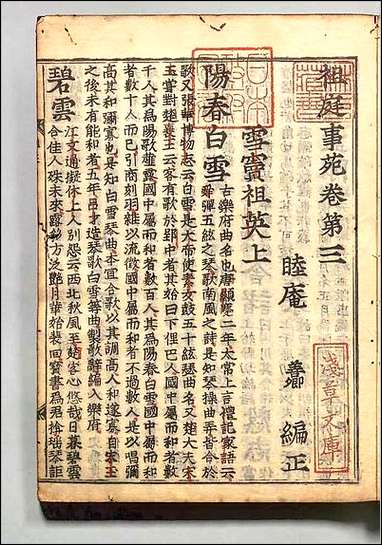 祖庭事苑卷第三
睦庵 善卿 編正
雪竇祖英上
陽春白雪
古樂府曲名也唐顯慶二年太常上言禮記家語云
舜彈五絃之琴歌南風之詩是知琴操曲弄皆合於
歌又張華博物志云白雪是太帝使素女鼓五十絃瑟曲名又楚大夫宋
玉嘗對楚襄王云客有歌於郢中者其始曰下俚巴人國中屬而和者數
千人其為陽阿薤露國中屬而和者數百人其為陽春白雪國中屬而和
者數十人而已引商刻羽雜以流徵國中屬而和者不過數人是以唱彌
高其和彌寡也是知白雪琴曲本宜合歌以其調高人和遂寡自宋玉
之後未有能和者五年呂才造琴歌白雪等曲製歌辭編入樂府
碧雲
江文通擬休上人別怨云西北秋風至楚客心悠哉日暮碧雲
合佳人殊未來露彩方泛艷月華始裴回寶書為君掩瑤琴詎
淺草文庫